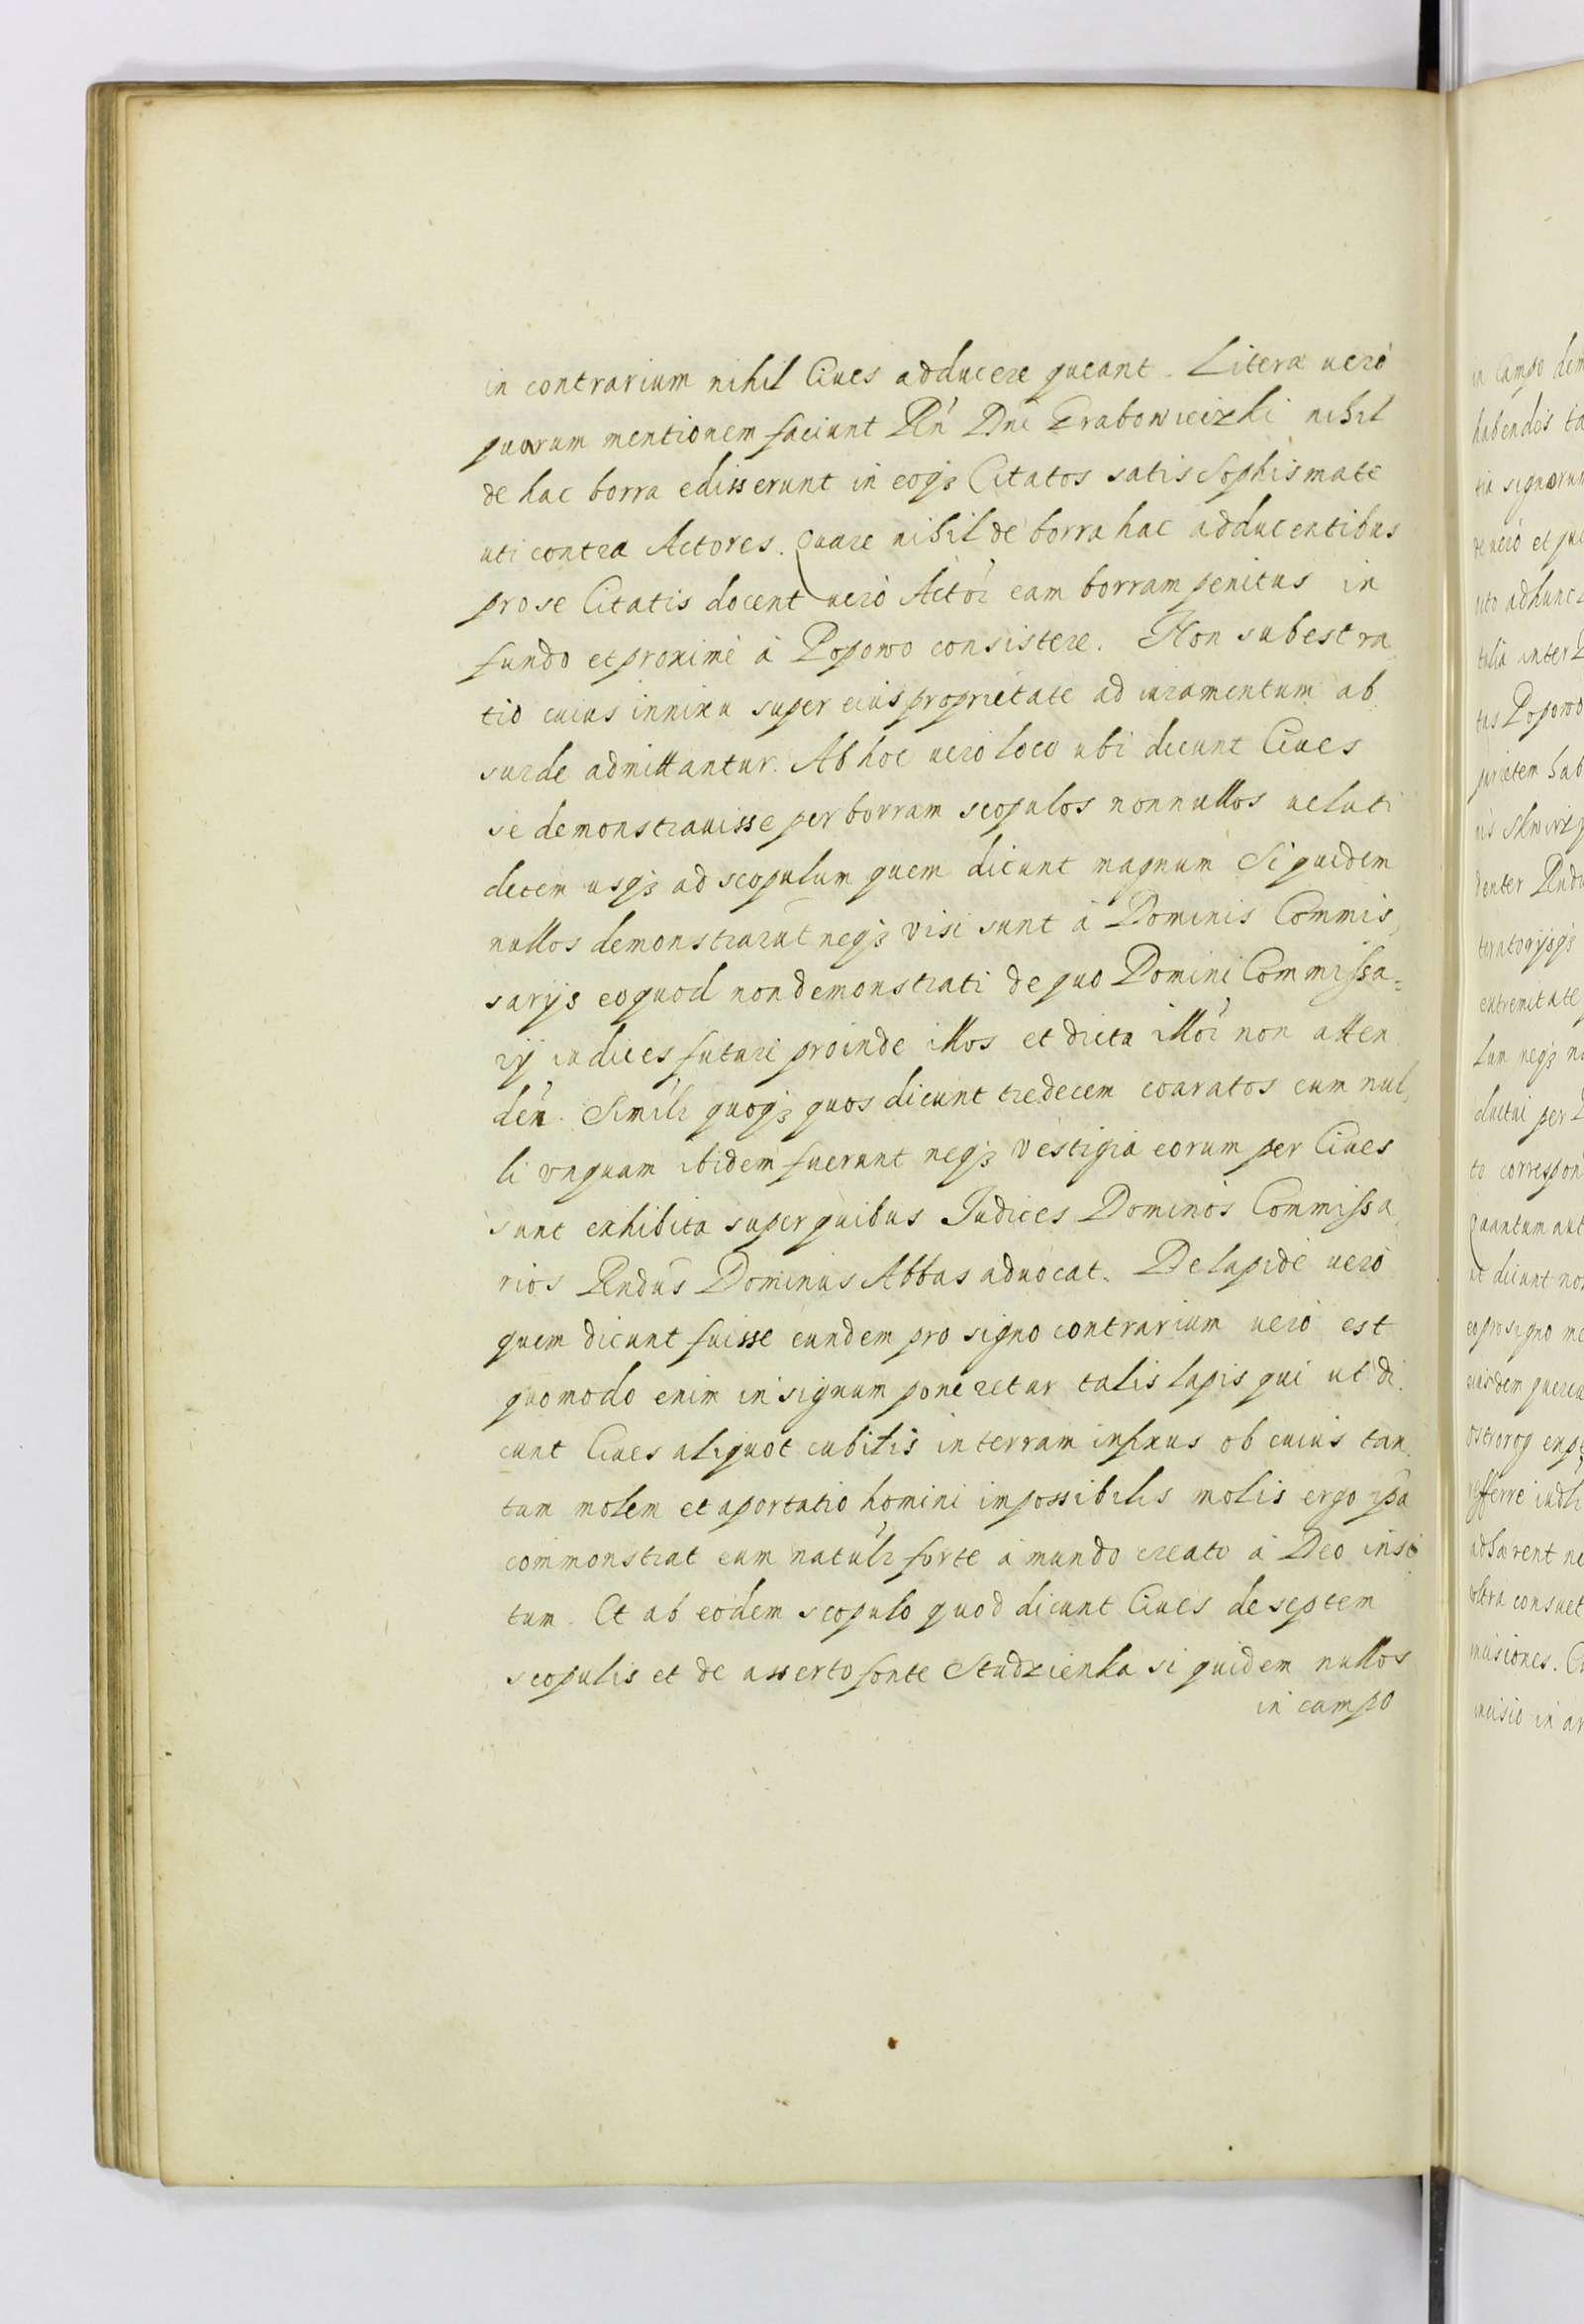 in contrarium nihil Ciues adducere queant. Litera uerò
quorum mentionem faciunt Rñ Dni Grabowieizki nihil
de hac borra edisserunt in eoqꝫ Citatos satis Sophismate
uti contra Actores. Quare nihil de borra hac adducentibus
pro se Citatis docent uerò Actor eam borram penitus in
fundo et proximè à Popowo consistere. Non subest ra
tio cuius innixu super eius proprietate ad iuramentum ab
surde admittantur. Ab hoc uero loco ubi dicunt Ciues
se demonstrauisse per borram scopulos nonnullos ueluti
decem usqꝫ ad scopulum quem dicunt magnum Siquidem
nullos demonstrarūt neqꝫ visi sunt à Dominis Commis,
sarijs eo quod non demonstrati de quo Domini Commissa=
rij iudices futuri proinde illos et dicta illor non atten
den. Simili quoqꝫ quos dicunt tredecem coaratos cum nul,
li vnquam ibidem fuerunt neqꝫ vestigia eorum per Ciues
sunt exhibita super quibus Iudices Dominos Commissa,
rios Rndūs Dominus Abbas aduocat. De lapide uerò
quem dicunt fuisse eundem pro signo contrarium uerò est
quomodo enim in signum poneretur talis lapis qui ut di,
cunt Ciues aliquot cubitis in terram infixus ob cuius tan,
tam molem et aportatio homini impossibilis molis ergo ipā
commonstrat eum natulr forte à mundo creato à Deo insi,
tum. Et ab eodem scopulo quod dicunt Ciues de septem
scopulis et de asserto fonte Studzienka siquidem nullos
in campo
in Campo
habendos
tia signorum
de uerò et
adhunc
talia inter
tus Popowo
parietem
nis
denter
teratorijsqꝫ
extremitate
lum neqꝫ
per
to
Quantum aut
ut dicunt
eo pro signo
eiusdem
Ostrorog
adhærent
vltra
incisio in